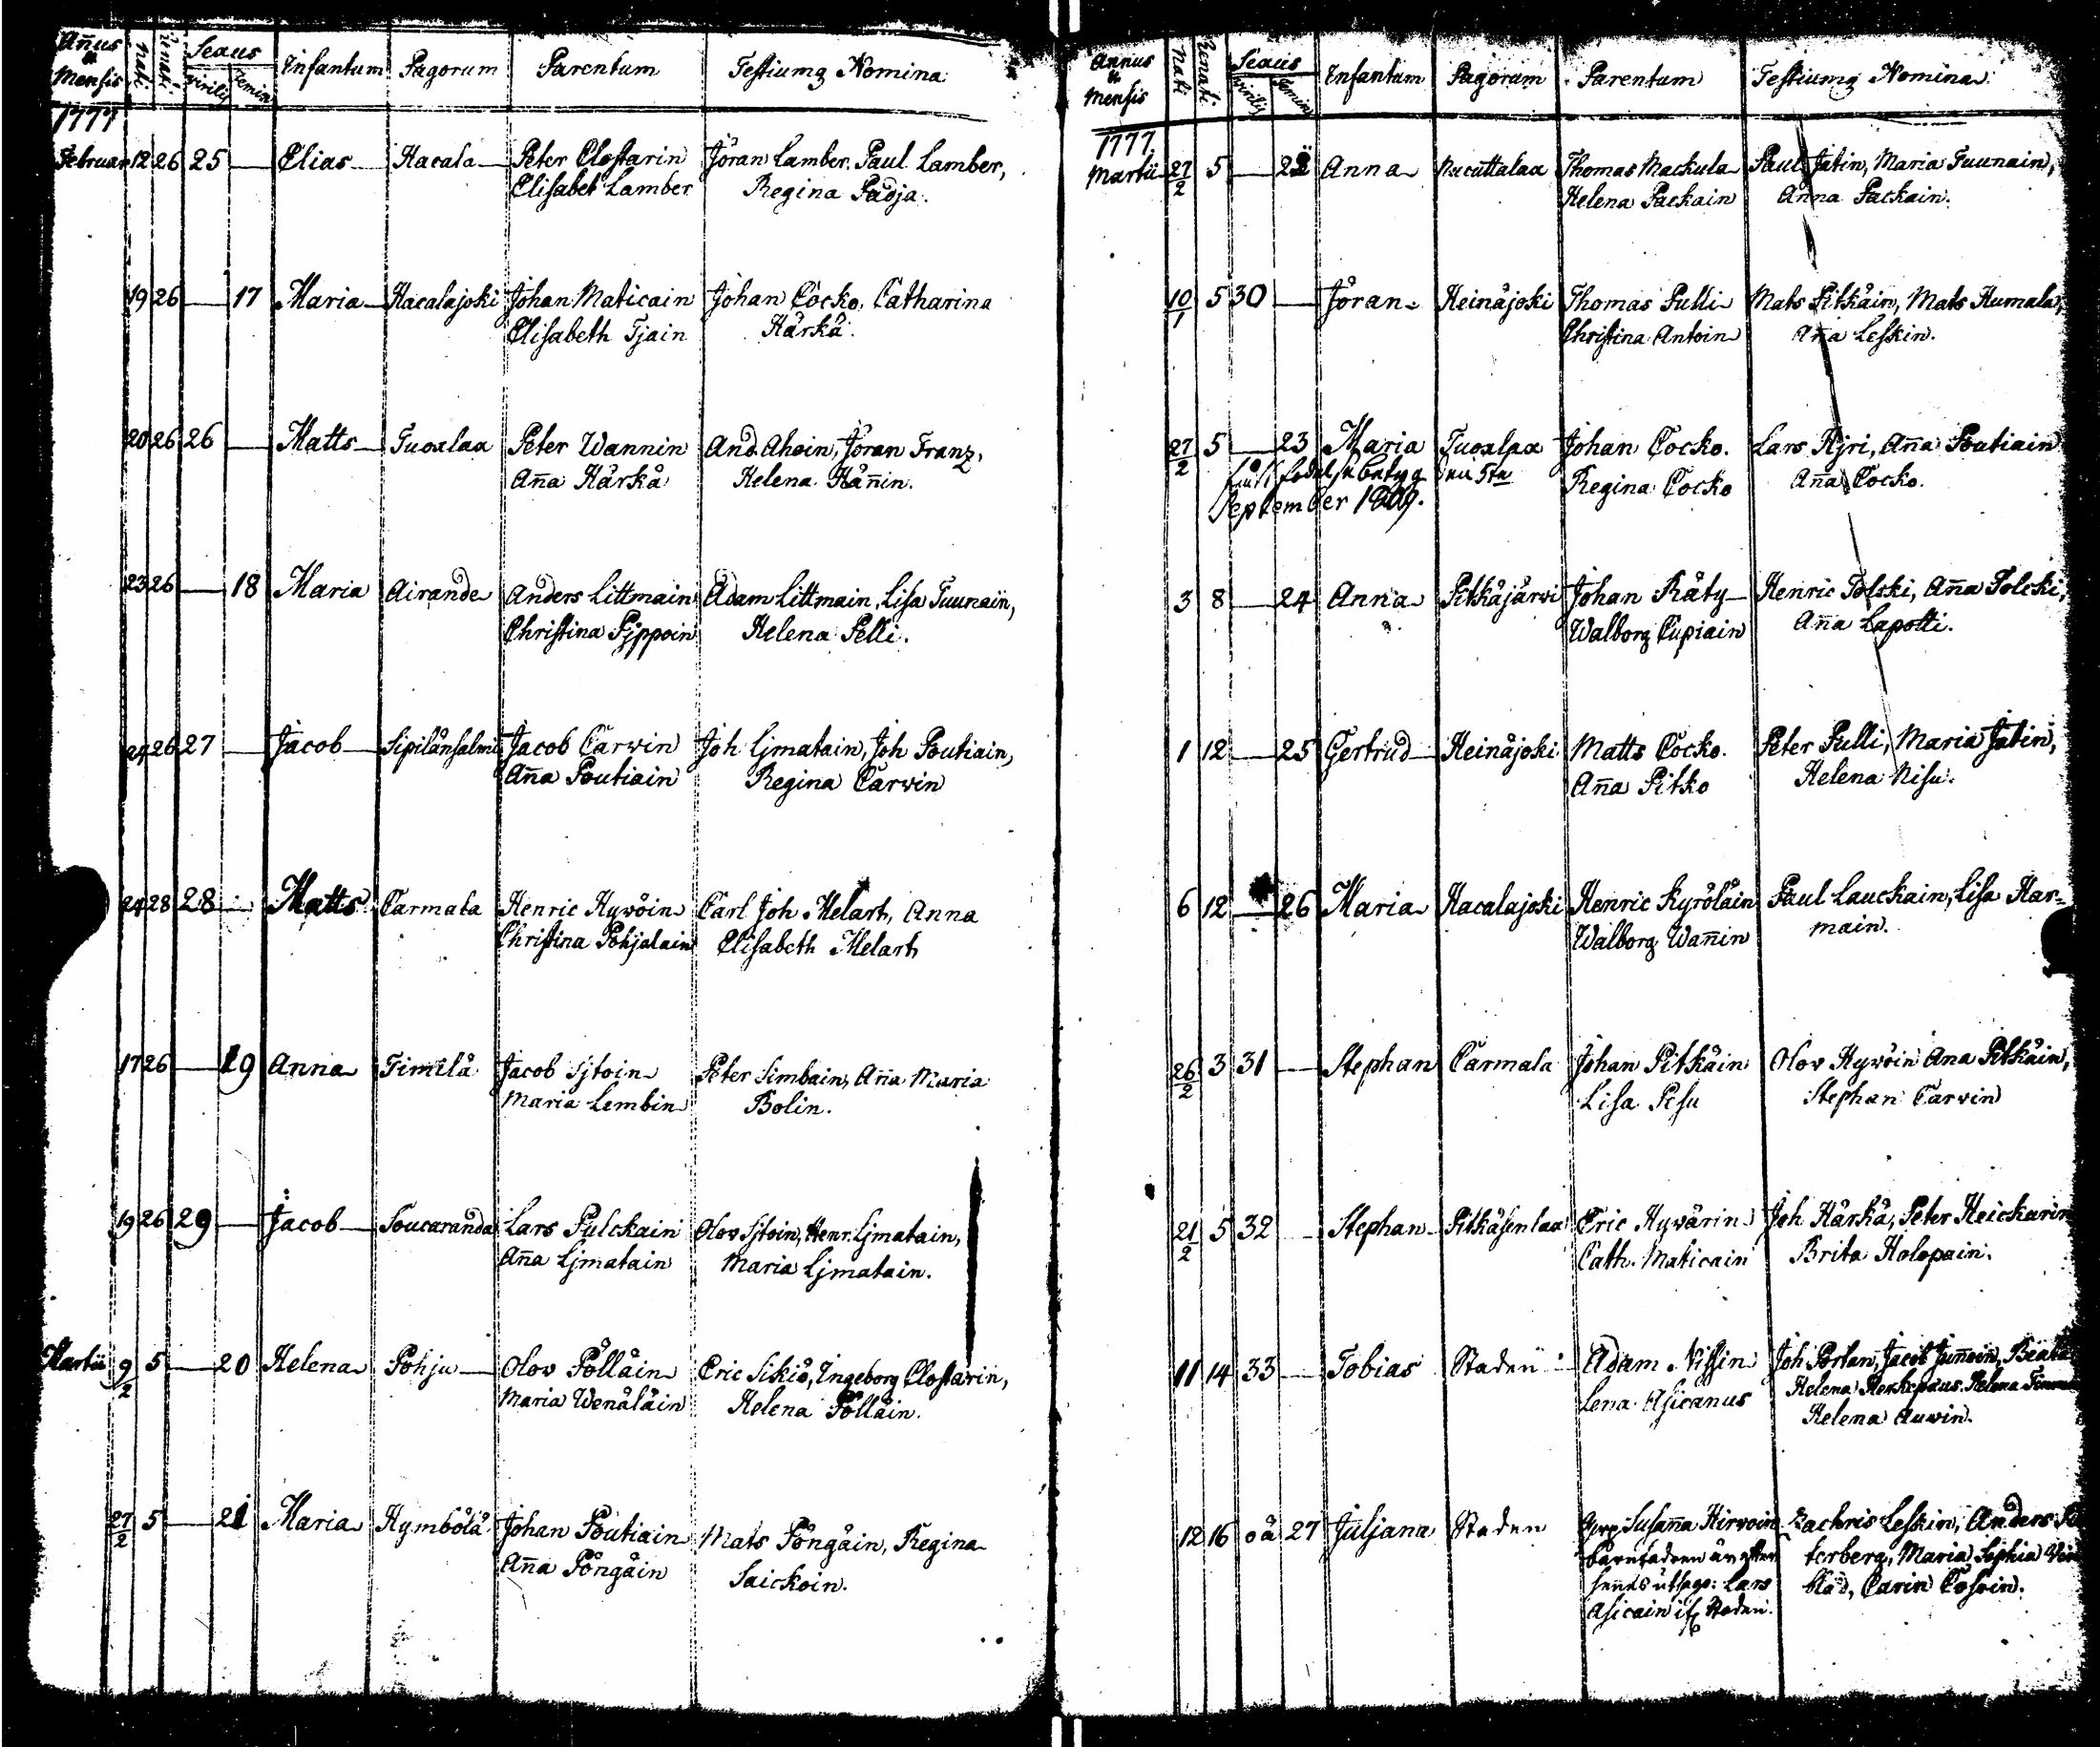 Añus & Mensis Nati Renati Sexus virilis Femin Infantum Pagorum Parentum Testiumq Nomina
1777
Februar 12 26 25 — Elias Hacala Peter Clostarin Jöran Lamber. Paul Lamber,
Elisabet Lamber Regina Padja.
19 26 — 17 Maria Hacalajoki Johan Maticain Johan Cocko, Catharina
Elisabeth Tjain Härkä.
20 26 26 — Matts Tuoxlax Peter Wannin And Ahoin, Jöran Franz,
Aña Härkä Helena Häñin.
23 26 — 18 Maria Airande Anders Littmain Adam Littmain, Lisa Tuunain,
Christina Pippoin Helena Pelli.
24 26 27 — Jacob Sipilänsalmi Jacob Carwin Joh Ijmatain, Joh Poutiain,
Aña Poutiain Regina Carwin
24 28 28 — Matts Carmala Henric Hywöin Carl Joh Melart, Anna
Christina Pohjalain Elisabeth Melart
17 26 — 19 Anna Timilä Jacob Sjtoin Peter Simbain, Aña Maria
Maria Lembin Bolin.
19 26 29 — Jacob Soucaranda Lars Pulckain Olov Sjtoin, Henr. Ijmatain,
Aña Ijmatain Maria Ijmatain.
Martii 9/2 5 — 20 Helena Pohju Olov Pölläin Eric Sikiö, Ingeborg Clostarin,
Maria Wenäläin Helena Pölläin.
27/2 5 — 21 Maria Hymbölä Johan Poutiain Mats Pöngäin, Regina
Aña Pöngäin Saickoin.
Annus & Mensis Nati Renati Sexus virilis Femin Infantum Pagorum Parentum Testiumq Nomina.
1777.
Martii 27/2 5 — 22 Anna Thomas Mackula Paul Jatin, Maria Tuunain,
Helena Packain Anna Packain.
10/1 5 30 — Jöran Heinäjoki Thomas Pulli Mats Pitkäin, Mats Humala,
Christina Antoin Aña Leskin.
27/2 5 — 23 Maria Tuoxlax Johan Cocko. Lars Äjri, Aña Poutiain
födelsebetyg den 5te Regina Cocko Aña Cocko.
September 1809.
3 8 — 24 Anna Pitkäjärwi Johan Räty Henric Tolski, Aña Tolcki,
Walborg Cupiain Aña Lapotti.
1 12 — 25 Gertrud Heinäjoki Matts Cocko. Peter Pulli, Maria Jatin,
Aña Pitko Helena Nisu.
6 12 — 26 Maria Hacalajoki Henric Kyröläin Paul Lauckain, Lisa Har-
Walborg Wañin main.
26/2 3 31 — Stephan Carmala Johan Pitkäin Olov Hywöin Ana Pitkäin,
Lisa Pesu Stephan Carwin
21/2 5 32 — Stephan Pitkäsenlax Eric Hywärin Joh Härkä, Peter Heickarin
Cath. Maticain Brita Holopain.
11 14 33 — Tobias Staden Adam Nissin Joh Portan, Jacob Beata
Lena Asicanus Helena Helena
Helena Auwin.
12 16 oä 27 Juljana Staden Susaña Hirwoin Zachris Leskin, Anders
barnfadren är efter terberg, Maria Sophia
hennes utsago: Lars blad, Carin Cosoin.
Asicain Staden.